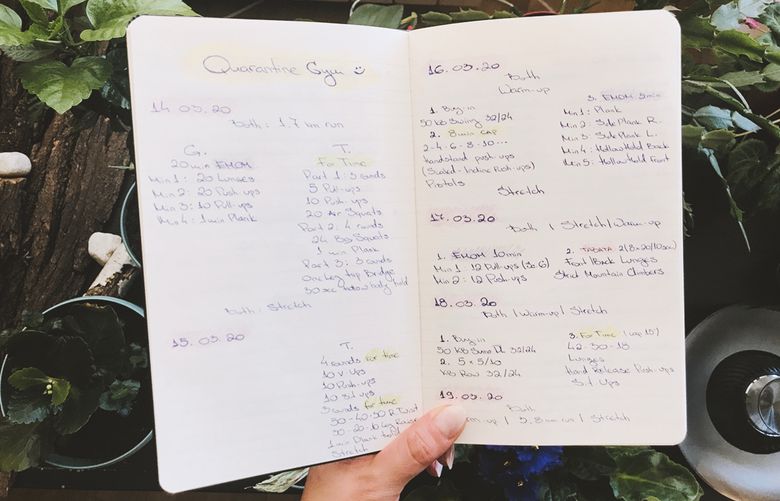 Quarantine Gym
14.03.20
Both: 1.7 km run
G.
20 min EMOM
Min 1: 20 Lunges
Min 2: 20 Push-ups
Min 3: 10 Pull-ups
Min 4: 1 min Plank
T.
For Time
Part 1: 3 rounds
5 Pull-ups
10 Push-ups
20 Air Squats
Part 2: 4 rounds
24 BG Squats
1 min Plank
Part 3: 3 rounds
One leg hip Bridge
30 sec hollow body hold
Both: Stretch
15.03.20
T.
4 rounds for time
10 V Ups
10 Push-ups
10 Sit ups
3 rounds for time
50-40-30 R. Twist
30-20-10 Leg Raise
1 min Plank
16.03.20
Both
Warm-up
1. Buy-in
50 KB Swing 32/24
2. 8 min CAP
2-4-6-8-10...
Handstand push-ups
(Scaled-Incline Push-ups)
Pistols
3. EMOM 5min
Min 1: Plank
Min 2: Side Plank R.
Min 3: Side Plank L.
Min 4: Hollow Hold Back
Min 5: Hollow Hold Front
Stretch
17.03.20
Both | Stretch/Warm-up
1. EMOM 10 min
Min 1: 12 Pull-ups (3x6)
Min 2: 12 Push-ups
2. TABATA 2(8x20/10sec)
Front/Back Lunges
Strict Mountain Climbers
18.03.20
Both | Warm-up | Stretch
1. Buy-in
50 KB Sumo DL 32/24
2. 5 x 5/10
KB Row 32/24
3. For Time (cap 15')
42-30-18
Lunges
Hand Release Push-ups
Sit Ups
19.03.20
Both
Warm-up | 3.8 km run | Stretch